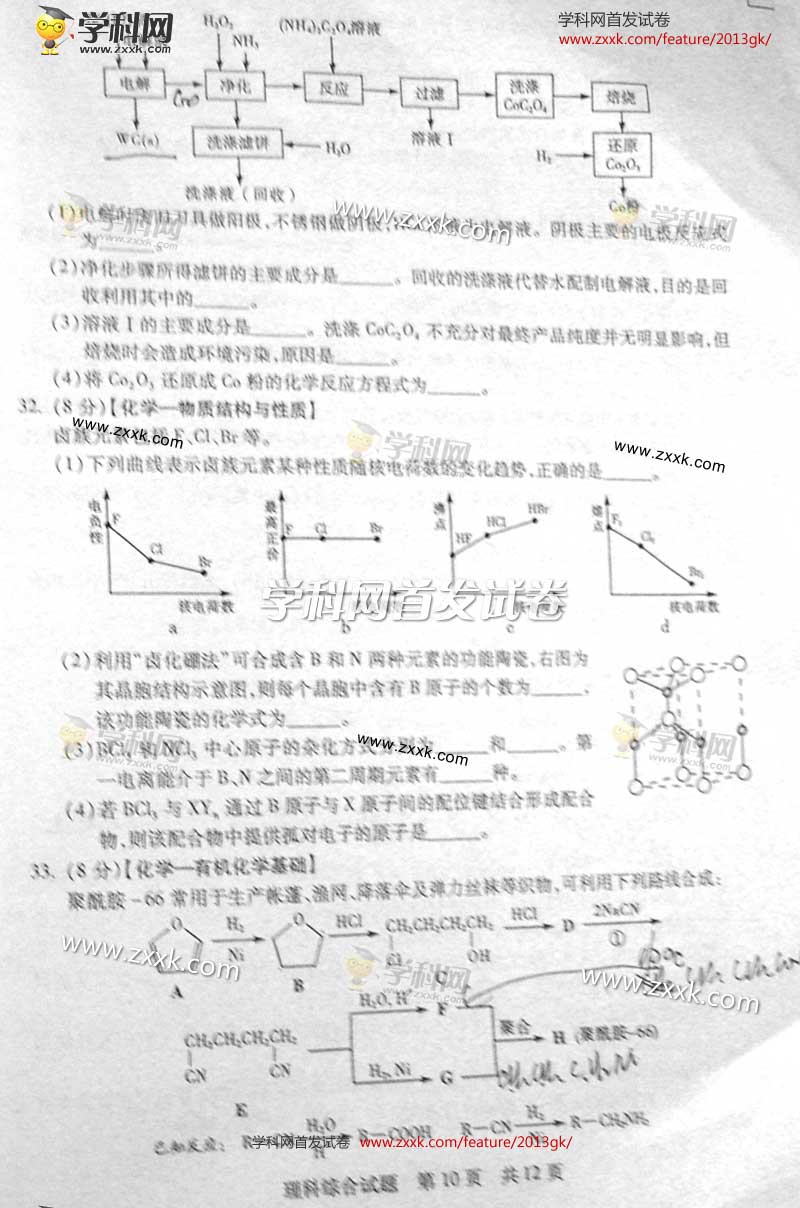 学科网
www.zxxk.com
学科网首发试卷
www.zxxk.com/feature/2013gk/
H₂O₂
NH₃
(NH₄)₂C₂O₄溶液
电解
净化
反应
过滤
洗涤
CoC₂O₄
焙烧
WC(s)
洗涤滤饼
H₂O
溶液Ⅰ
H₂
还原
Co₂O₃
洗涤液(回收)
Co粉
(1)电解时 刀具做阳极,不锈钢做阴极, 电解液。阴极主要的电极反应式
为______。
www.zxxk.com
(2)净化步骤所得滤饼的主要成分是______。回收的洗涤液代替水配制电解液,目的是回
收利用其中的______。
(3)溶液Ⅰ的主要成分是______。洗涤 CoC₂O₄ 不充分对最终产品纯度并无明显影响,但
焙烧时会造成环境污染,原因是______。
(4)将 Co₂O₃ 还原成 Co 粉的化学反应方程式为______。
32. (8分)【化学—物质结构与性质】
www.zxxk.com
学科网
卤族元素包括 F、Cl、Br 等。
www.zxxk.com
(1)下列曲线表示卤族元素某种性质随核电荷数的变化趋势,正确的是______。
电负性
F
Cl
Br
核电荷数
a
最高正价
F
Cl
Br
b
沸点
HF
HCl
HBr
c
熔点
F₂
Cl₂
Br₂
核电荷数
d
学科网首发试卷
(2)利用“卤化硼法”可合成含 B 和 N 两种元素的功能陶瓷,右图为
其晶胞结构示意图,则每个晶胞中含有 B 原子的个数为______,
该功能陶瓷的化学式为______。
(3)BCl₃ 和 NCl₃ 中心原子的杂化方式分别为______和______。第
www.zxxk.com
一电离能介于 B、N 之间的第二周期元素有______种。
(4)若 BCl₃ 与 XYₙ 通过 B 原子与 X 原子间的配位键结合形成配合
物,则该配合物中提供孤对电子的原子是______。
33. (8分)【化学—有机化学基础】
聚酰胺-66常用于生产帐篷、渔网、降落伞及弹力丝袜等织物,可利用下列路线合成:
O
A
H₂
Ni
O
B
HCl
CH₂CH₂CH₂CH₂
Cl
OH
C
HCl
D
2NaCN
①
www.zxxk.com
学科网
www.zxxk.com
www.zxxk.com
CH₂CH₂CH₂CH₂
CN
CN
E
H₂O, H⁺
F
H₂, Ni
G
聚合
H (聚酰胺-66)
已知反应: R—CN
H₂O
H⁺
R—COOH
R—CN
H₂
Ni
R—CH₂NH₂
学科网首发试卷 www.zxxk.com/feature/2013gk/
理科综合试题 第10页 共12页